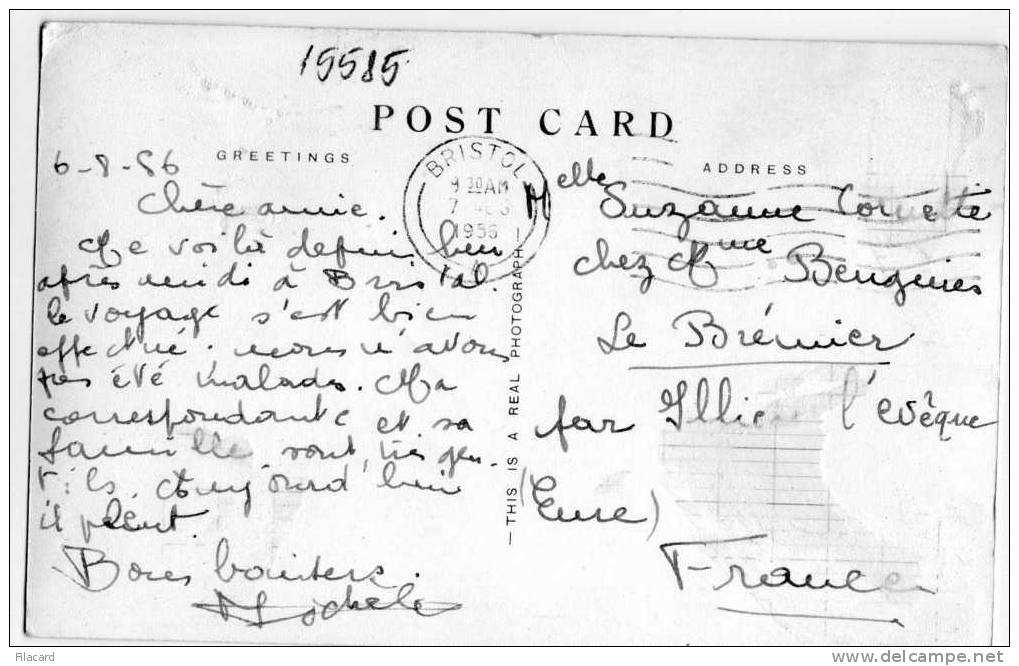 15585
POST CARD
GREETINGS
ADDRESS
BRISTOL
9 30 AM
7
1956
6-8-56
Chère amie.
Me voilà depuis hier
après midi à Bristol.
le voyage s'est bien
effectué. nous n'avons
pas été malades. Ma
correspondante et sa
famille sont très gen-
tils. Aujourd'hui
il pleut.
Bons baisers.
Michèle
— THIS IS A REAL PHOTOGRAPH —
Melle Suzanne
chez Mme
Le
par Illiers l'evêque
(Eure)
France
Filacard
http://www.delcampe.net